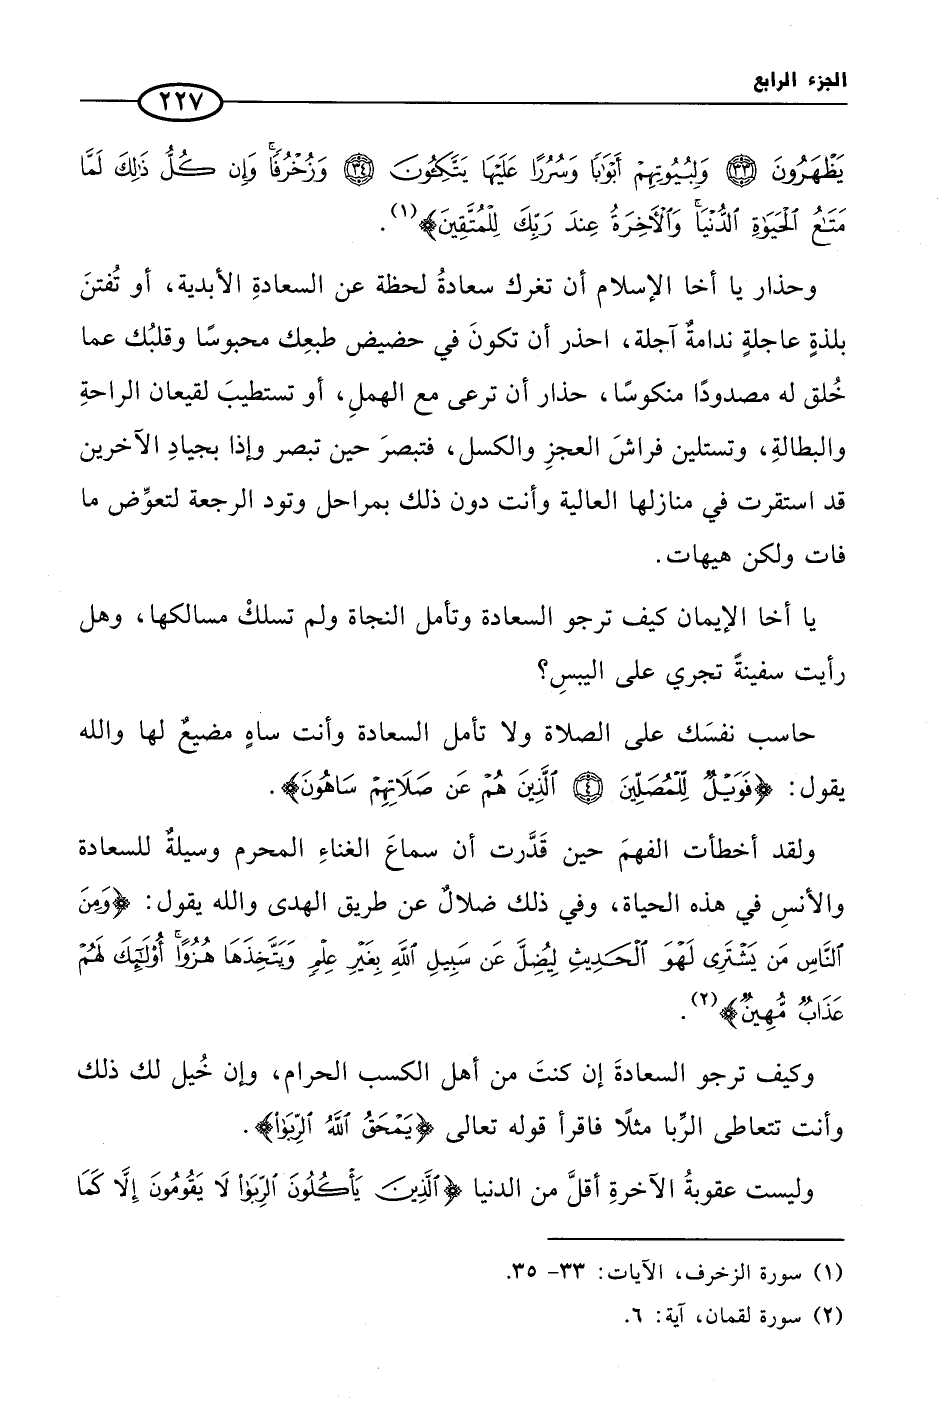 الجزء الرابع
٢٢٧
يَظْهَرُونَ ﴿٣٣﴾ وَلِبُيُوتِهِمْ أَبْوَابًا وَسُرُرًا عَلَيْهَا يَتَّكِئُونَ ﴿٣٤﴾ وَزُخْرُفًا ۚ وَإِن كُلُّ ذَٰلِكَ لَمَّا
مَتَاعُ الْحَيَوٰةِ الدُّنْيَا ۚ وَالْآخِرَةُ عِندَ رَبِّكَ لِلْمُتَّقِينَ﴾(١).
وحذار يا أخا الإسلام أن تغرك سعادةُ لحظة عن السعادةِ الأبدية، أو تُفتنَ
بلذةٍ عاجلةٍ ندامةٌ آجلة، احذر أن تكونَ في حضيض طبعِك محبوسًا وقلبُك عما
خُلق له مصدودًا منكوسًا، حذار أن ترعى مع الهملِ، أو تستطيبَ لقيعان الراحةِ
والبطالةِ، وتستلين فراشَ العجزِ والكسل، فتبصرَ حين تبصر وإذا بجيادِ الآخرين
قد استقرت في منازلها العالية وأنت دون ذلك بمراحل وتود الرجعة لتعوِّض ما
فات ولكن هيهات.
يا أخا الإيمان كيف ترجو السعادة وتأمل النجاة ولم تسلكْ مسالكها، وهل
رأيت سفينةً تجري على اليبسِ؟
حاسب نفسَك على الصلاة ولا تأمل السعادة وأنت ساهٍ مضيعٌ لها والله
يقول: ﴿فَوَيْلٌ لِّلْمُصَلِّينَ ﴿٤﴾ الَّذِينَ هُمْ عَن صَلَاتِهِمْ سَاهُونَ﴾.
ولقد أخطأت الفهمَ حين قَدَّرت أن سماعَ الغناءِ المحرم وسيلةٌ للسعادة
والأنسِ في هذه الحياة، وفي ذلك ضلالٌ عن طريق الهدى والله يقول: ﴿وَمِنَ
النَّاسِ مَن يَشْتَرِى لَهْوَ الْحَدِيثِ لِيُضِلَّ عَن سَبِيلِ اللَّهِ بِغَيْرِ عِلْمٍ وَيَتَّخِذَهَا هُزُوًا ۚ أُوْلَٰٓئِكَ لَهُمْ
عَذَابٌ مُّهِينٌ﴾(٢).
وكيف ترجو السعادةَ إن كنتَ من أهل الكسب الحرام، وإن خُيل لك ذلك
وأنت تتعاطى الرِّبا مثلًا فاقرأ قوله تعالى ﴿يَمْحَقُ اللَّهُ الرِّبَوٰا﴾.
وليست عقوبةُ الآخرةِ أقلَّ من الدنيا ﴿الَّذِينَ يَأْكُلُونَ الرِّبَوٰا لَا يَقُومُونَ إِلَّا كَمَا
(١) سورة الزخرف، الآيات: ٣٣- ٣٥.
(٢) سورة لقمان، آية: ٦.